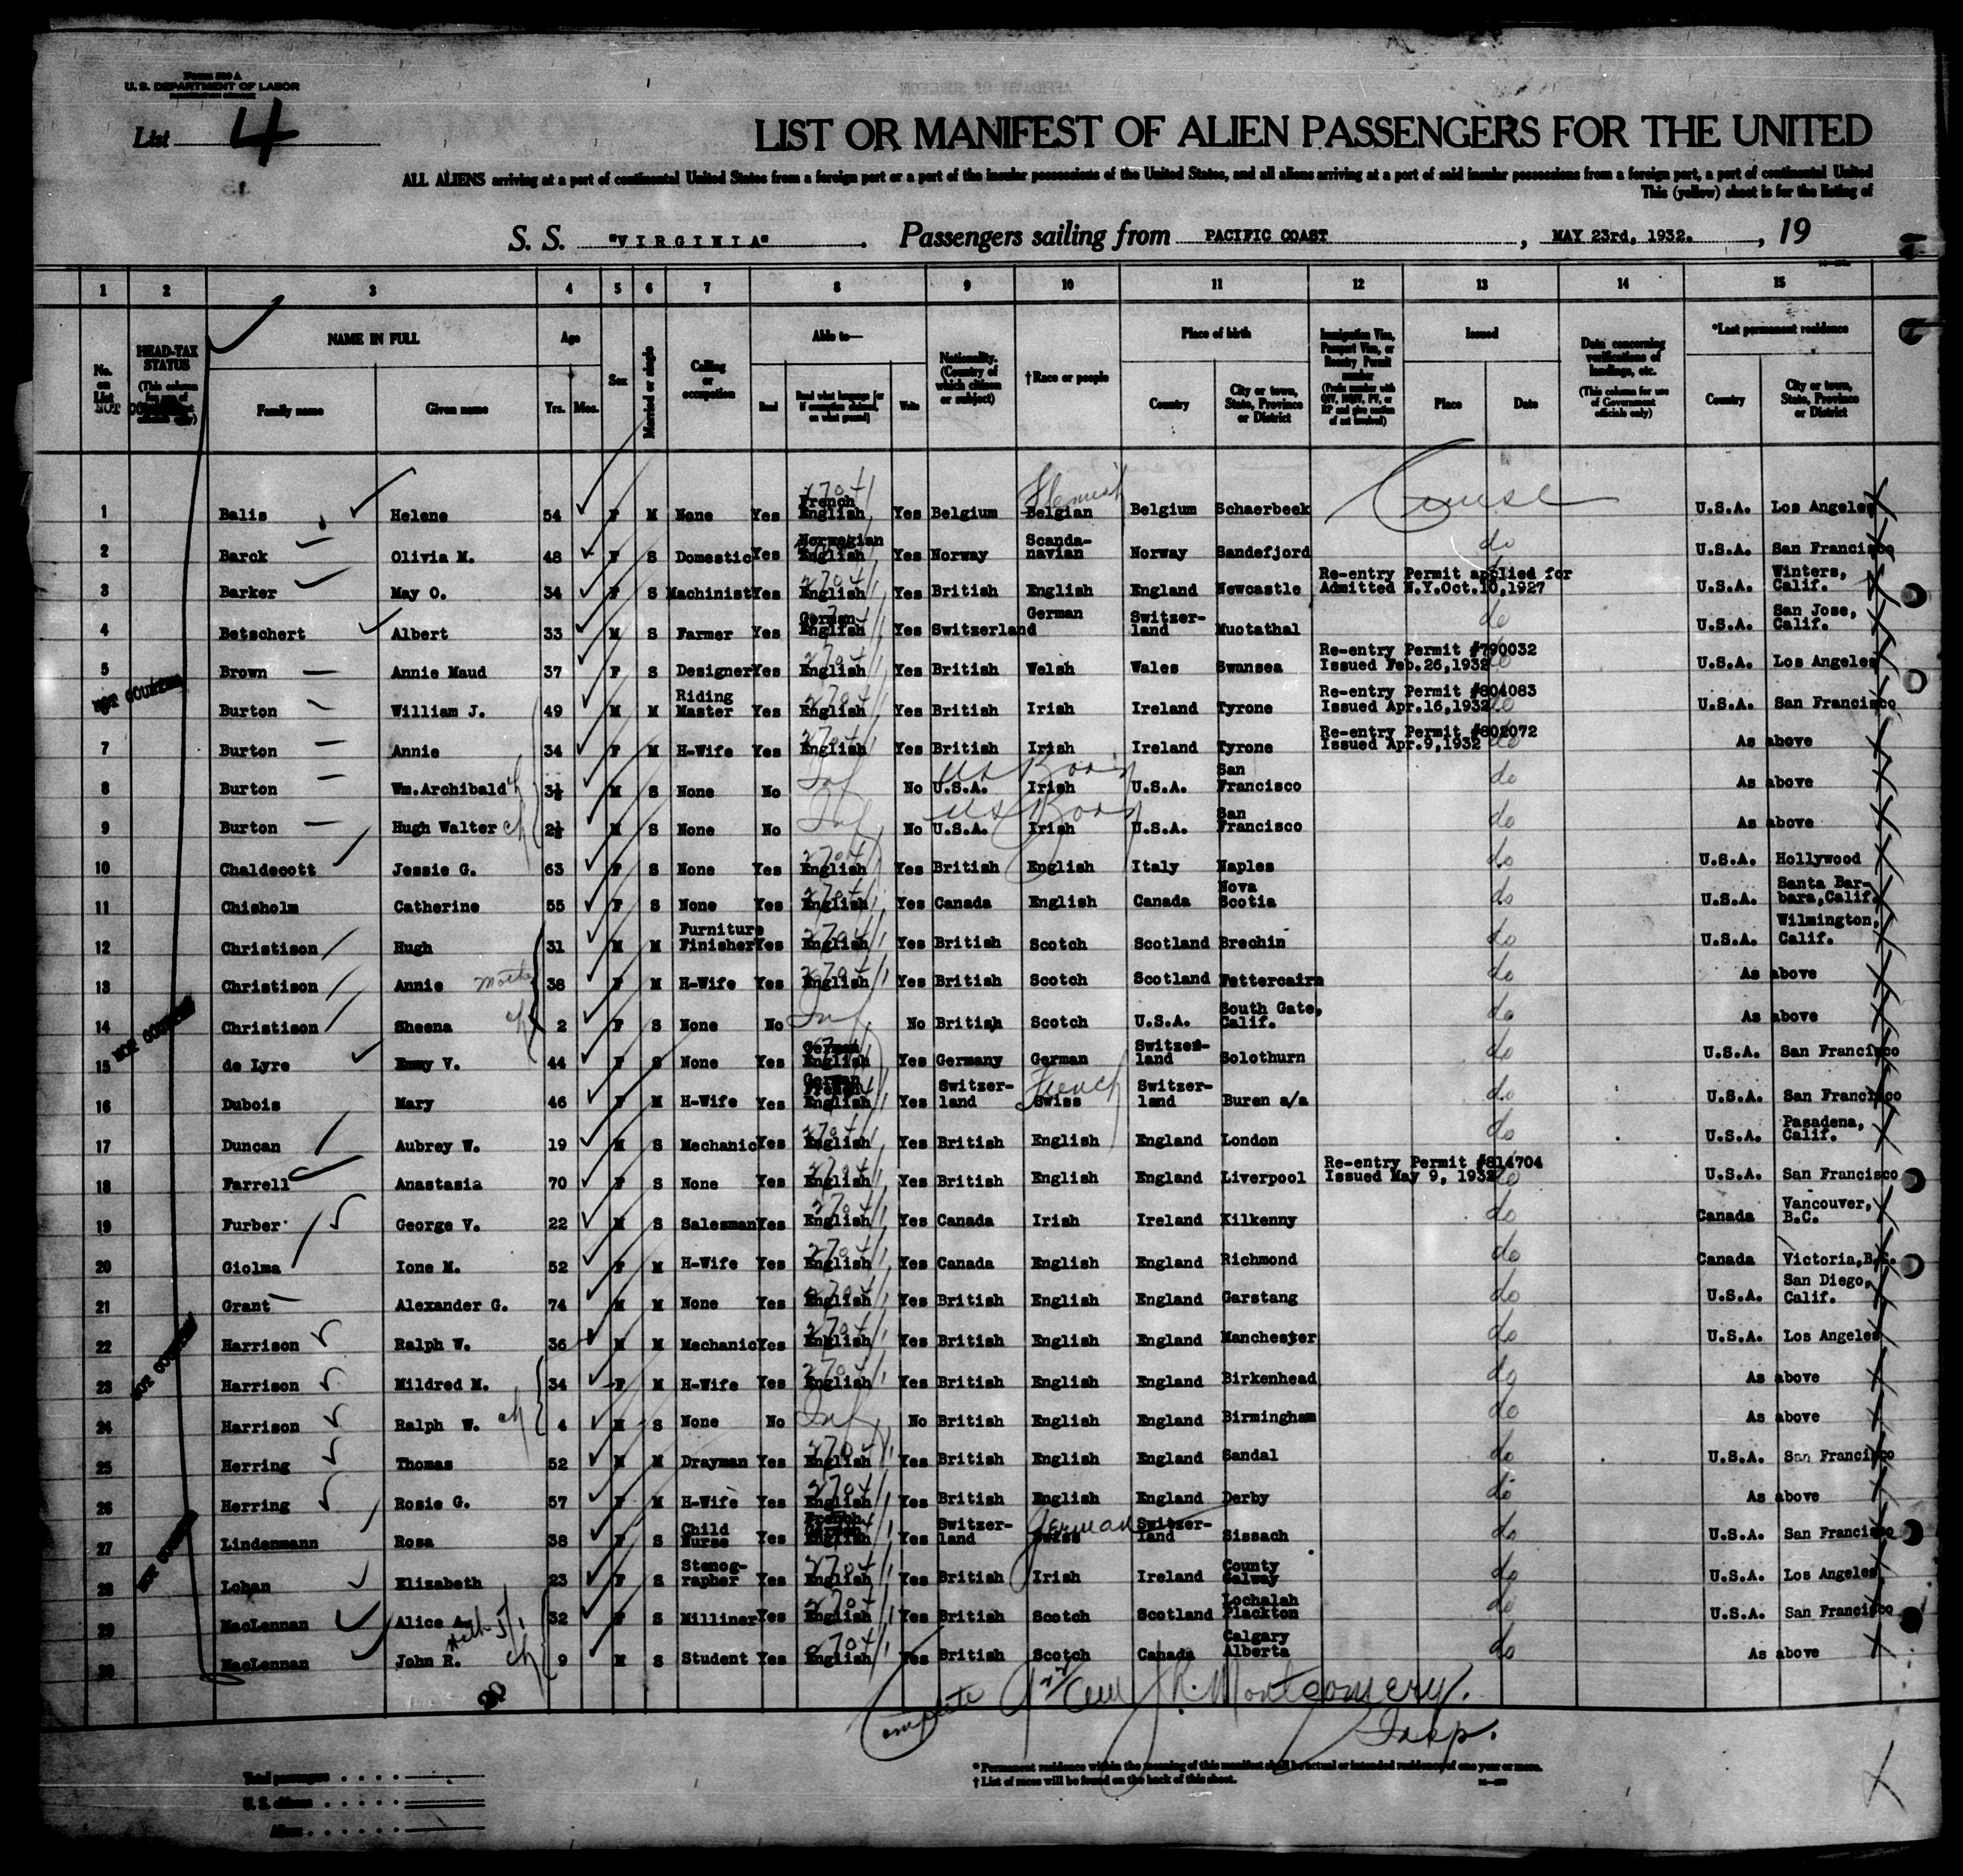 Form 500 A
U. S. DEPARTMENT OF LABOR
IMMIGRATION SERVICE
List 4
LIST OR MANIFEST OF ALIEN PASSENGERS FOR THE UNITED
ALL ALIENS arriving at a port of continental United States from a foreign port or a port of the insular possessions of the United States, and all aliens arriving at a port of said insular possessions from a foreign port, a port of continental United
This (yellow) sheet is for the listing of
S. S. "VIRGINIA" Passengers sailing from PACIFIC COAST, MAY 23rd, 1932., 19
1 2 3 4 5 6 7 8 9 10 11 12 13 14 15
No. on List
HEAD-TAX STATUS (This column for use of Government officials only)
NAME IN FULL
Family name
Given name
Age
Yrs. Mos.
Sex
Married or single
Calling or occupation
Able to—
Read
Read what language [or if exemption claimed, on what ground]
Write
Nationality. (Country of which citizen or subject)
†Race or people
Place of birth
Country
City or town, State, Province or District
Immigration Visa, Passport Visa, or Reentry Permit number
(Prefix number with QIV, NQIV, PV, or RP and give section of act involved)
Issued
Place
Date
Data concerning verifications of landings, etc.
(This column for use of Government officials only)
*Last permanent residence
Country
City or town, State, Province or District
1 Balis Helene 54 F M None Yes French English Yes Belgium Flemish Belgian Belgium Schaerbeek Cruise U.S.A. Los Angeles
2 Barck Olivia M. 48 F S Domestic Yes Norwegian English Yes Norway Scandanavian Norway Sandefjord do U.S.A. San Francisco
3 Barker May O. 34 F S Machinist Yes English Yes British English England Newcastle Re-entry Permit applied for Admitted N.Y.Oct.10,1927 U.S.A. Winters, Calif.
4 Betschert Albert 33 M S Farmer Yes German English Yes Switzerland German Switzer-land Muotathal do U.S.A. San Jose, Calif.
5 Brown Annie Maud 37 F S Designer Yes English Yes British Welsh Wales Swansea Re-entry Permit #790032 Issued Feb.26,1932 do U.S.A. Los Angeles
NOT COUNTED
Burton William J. 49 M M Riding Master Yes English Yes British Irish Ireland Tyrone Re-entry Permit #804083 Issued Apr.16,1932 do U.S.A. San Francisco
7 Burton Annie 34 F M H-Wife Yes English Yes British Irish Ireland Tyrone Re-entry Permit #802072 Issued Apr.9,1932 do As above
8 Burton Wm.Archibald ch 3½ M S None No Inf No U.S.A. US Born Irish U.S.A. San Francisco do As above
9 Burton Hugh Walter ch 2½ M S None No Inf No U.S.A. US Born Irish U.S.A. San Francisco do As above
10 Chaldecott Jessie G. 63 F S None Yes English Yes British English Italy Naples do U.S.A. Hollywood
11 Chisholm Catherine 55 F S None Yes English Yes Canada English Canada Nova Scotia do U.S.A. Santa Bar-bara,Calif.
12 Christison Hugh 31 M M Furniture Finisher Yes English Yes British Scotch Scotland Brechin do U.S.A. Wilmington, Calif.
13 Christison Annie Mother 38 F M H-Wife Yes English Yes British Scotch Scotland Fettercairn do As above
14 Christison Sheena ch 2 F S None No Inf No British Scotch U.S.A. South Gate, Calif. do As above
NOT COUNTED
15 de Lyre Emmy V. 44 F S None Yes German English Yes Germany German Switzer-land Solothurn do U.S.A. San Francisco
16 Dubois Mary 46 F M H-Wife Yes German French English Yes Switzer-land French Swiss Switzer-land Buren a/a do U.S.A. San Francisco
17 Duncan Aubrey W. 19 M S Mechanic Yes English Yes British English England London do U.S.A. Pasadena, Calif.
18 Farrell Anastasia 70 F S None Yes English Yes British English England Liverpool Re-entry Permit #814704 Issued May 9, 1932 do U.S.A. San Francisco
19 Furber George V. 22 M S Salesman Yes English Yes Canada Irish Ireland Kilkenny do Canada Vancouver, B.C.
20 Giolma Ione M. 52 F M H-Wife Yes English Yes Canada English England Richmond do Canada Victoria,B.C.
21 Grant Alexander G. 74 M M None Yes English Yes British English England Garstang do U.S.A. San Diego, Calif.
22 Harrison Ralph W. 36 M M Mechanic Yes English Yes British English England Manchester do U.S.A. Los Angeles
NOT COUNTED
23 Harrison Mildred M. 34 F M H-Wife Yes English Yes British English England Birkenhead do As above
24 Harrison Ralph W. ch 4 M S None No Inf No British English England Birmingham do As above
25 Herring Thomas 52 M M Drayman Yes English Yes British English England Sandal do U.S.A. San Francisco
26 Herring Rosie G. 57 F M H-Wife Yes English Yes British English England Derby do As above
27 Lindenmann Rosa 38 F S Child Nurse Yes French German English Yes Switzer-land German Swiss Switzer-land Sissach do U.S.A. San Francisco
NOT COUNTED
28 Lohan Elizabeth 23 F S Stenog-rapher Yes English Yes British Irish Ireland County Galway do U.S.A. Los Angeles
29 MacLennan Alice A. 32 F S Milliner Yes English Yes British Scotch Scotland Lochalsh Plackton do U.S.A. San Francisco
30 MacLennan John R. ch 9 M S Student Yes English Yes British Scotch Canada Calgary Alberta do As above
Complete J.R. Montgomery.
Insp.
* Permanent residence within the meaning of this manifest shall be actual or intended residence of one year or more.
† List of races will be found on the back of this sheet.
Total passengers
U. S. citizens
Aliens